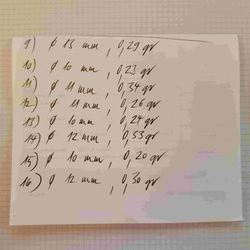 9) ø 13 mm, 0,29 gr
10) ø 10 mm, 0,23 gr
11) ø 11 mm, 0,34 gr
12) ø 11 mm, 0,26 gr
13) ø 10 mm, 0,24 gr
14) ø 12 mm, 0,53 gr
15) ø 10 mm, 0,20 gr
16) ø 12 mm, 0,30 gr